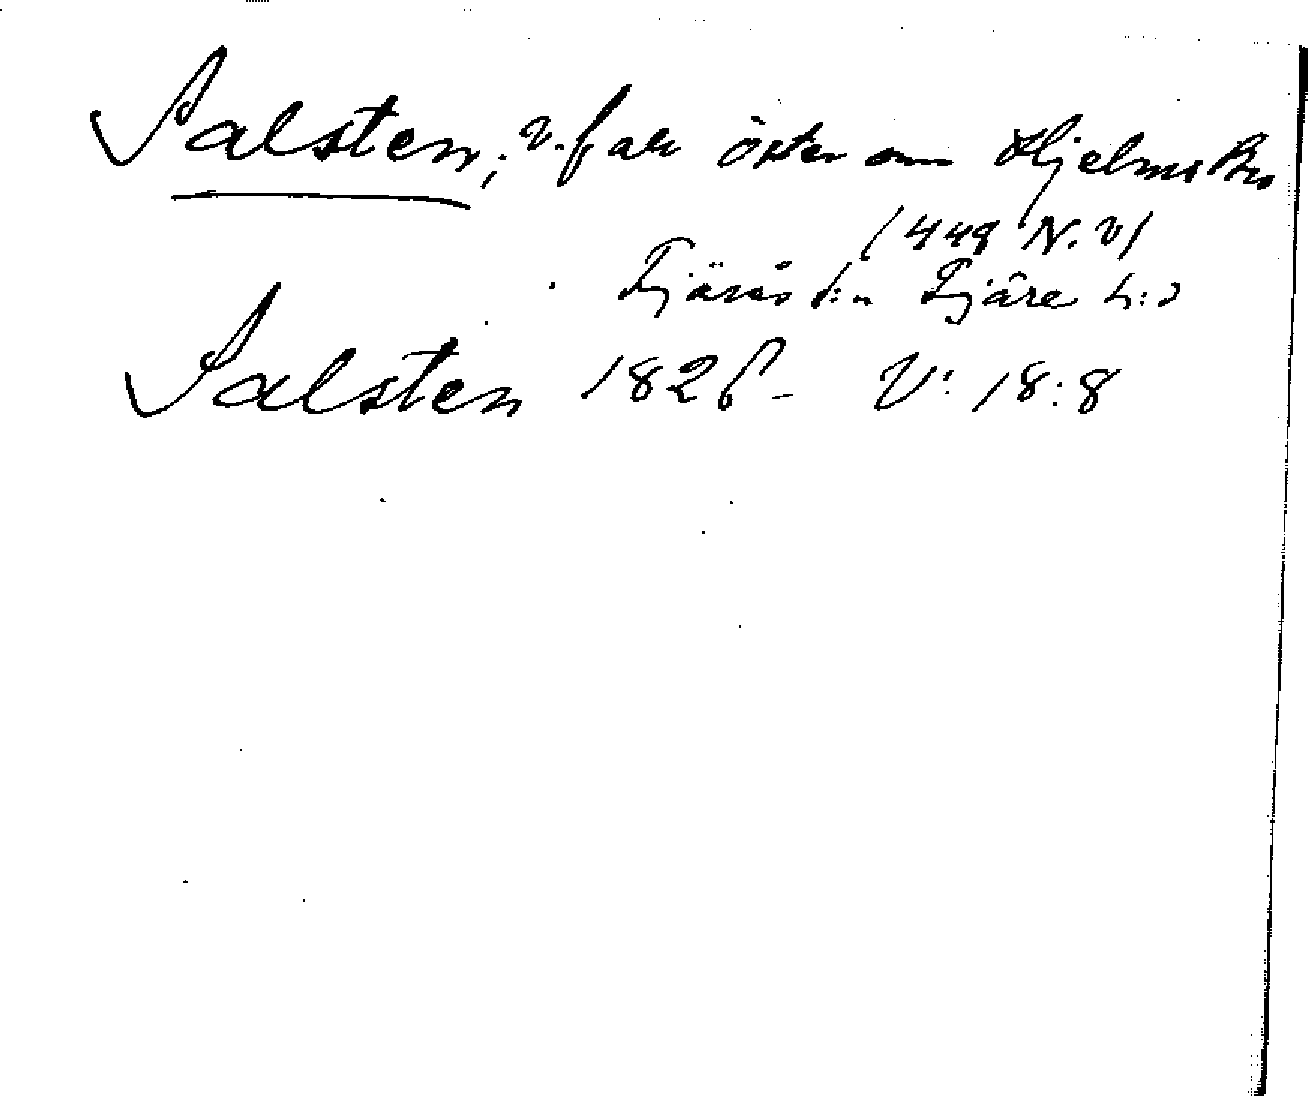 Salsten, v. fall öster om Hjelms Bro
(449 N.V)
Fjärås s:n Fjäre h:d
Salsten 1826- V: 18:8